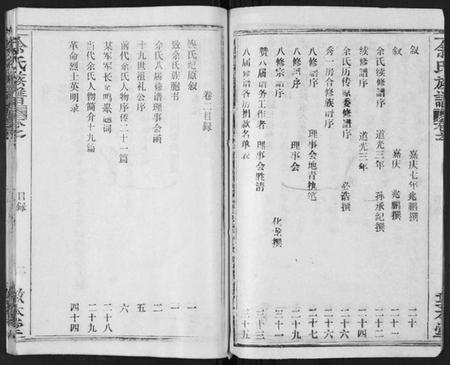 余氏族譜
叙 嘉庆七年兆鹏撰 二十
叙 嘉庆 兆鹏撰 二十一
续修谱序 道光三年 孙承纪撰
余氏历传 谱序 必浩撰 二十六
秀一房合修族谱序 二十六
八修谱序 理事会地青执笔 二十七
八修谱序 理事会 二十九
八修宗谱序 化 撰 三十一
赞八届谱务工作者 理事会胜清 三十三
八届修谱各房捐款名单表 三十五
卷二目录
族氏纪原叙 一
致余氏族胞书 一
余氏八届修谱理事会函 二
十九世祖礼公序 五
前代余氏人物序传二十一篇 六
某军军长余 题词 二十八
当代余氏人物简介十九篇 二十九
革命烈士英明录 四十四
目录
敦本堂